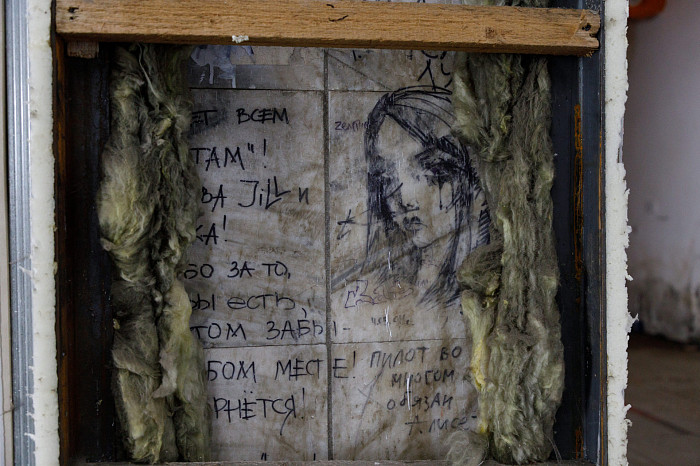 ЕТ ВСЕМ
ТАМ"!
ВА JiLL и
КА!
БО ЗА ТО,
Ы ЕСТЬ,
ТОМ ЗАБЫ-
БОМ МЕСТЕ!
РНЁТСЯ!
ПИЛОТ ВО
МНОГОМ
ОБЯЗАН
АЛИСЕ